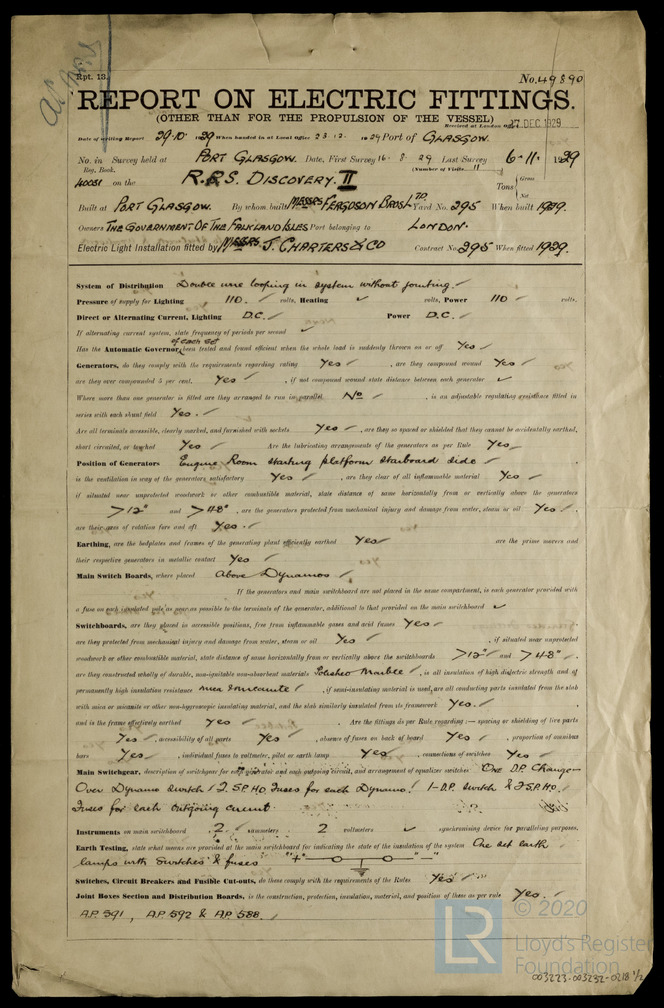 Rpt. 13.
No. 49890
REPORT ON ELECTRIC FITTINGS.
(OTHER THAN FOR THE PROPULSION OF THE VESSEL)
Received at London Office 27 DEC 1929
Date of writing Report 29·10· 1929 When handed in at Local Office 23·12· 1929 Port of GLASGOW.
No. in Survey held at PORT GLASGOW. Date, First Survey 16·8·29 Last Survey 6·11· 1929
Reg. Book. (Number of Visits 11
40031 on the R.R.S. DISCOVERY. II Tons { Gross
Net
Built at PORT GLASGOW. By whom built MESSRS FERGUSON BROS LTD. Yard No. 295 When built 1929.
Owners THE GOVERNMENT OF THE FALKLAND ISLES Port belonging to LONDON.
Electric Light Installation fitted by MESSRS J. CHARTERS & CO Contract No. 295 When fitted 1929.
System of Distribution Double wire looping in system without jointing.
Pressure of supply for Lighting 110. volts, Heating ✓ volts, Power 110 volts.
Direct or Alternating Current, Lighting D.C. Power D.C.
If alternating current system, state frequency of periods per second ✓
Has the Automatic Governor of each set been tested and found efficient when the whole load is suddenly thrown on or off Yes
Generators, do they comply with the requirements regarding rating Yes , are they compound wound Yes
are they over compounded 5 per cent. Yes , if not compound wound state distance between each generator ✓
Where more than one generator is fitted are they arranged to run in parallel No , is an adjustable regulating resistance fitted in
series with each shunt field Yes.
Are all terminals accessible, clearly marked, and furnished with sockets Yes , are they so spaced or shielded that they cannot be accidentally earthed,
short circuited, or touched Yes Are the lubricating arrangements of the generators as per Rule Yes
Position of Generators Engine Room starting platform starboard side
is the ventilation in way of the generators satisfactory Yes , are they clear of all inflammable material Yes
if situated near unprotected woodwork or other combustible material, state distance of same horizontally from or vertically above the generators
>12" and >48" , are the generators protected from mechanical injury and damage from water, steam or oil Yes
are their axes of rotation fore and aft Yes.
Earthing, are the bedplates and frames of the generating plant efficiently earthed Yes are the prime movers and
their respective generators in metallic contact Yes
Main Switch Boards, where placed above Dynamos
If the generators and main switchboard are not placed in the same compartment, is each generator provided with
a fuse on each insulated pole as near as possible to the terminals of the generator, additional to that provided on the main switchboard ✓
Switchboards, are they placed in accessible positions, free from inflammable gases and acid fumes Yes
are they protected from mechanical injury and damage from water, steam or oil Yes , if situated near unprotected
woodwork or other combustible material, state distance of same horizontally from or vertically above the switchboards >12" and >48"
are they constructed wholly of durable, non-ignitable non-absorbent materials Polished Marble , is all insulation of high dielectric strength and of
permanently high insulation resistance mica & micanite , if semi-insulating material is used, are all conducting parts insulated from the slab
with mica or micanite or other non-hygroscopic insulating material, and the slab similarly insulated from its framework Yes.
and is the frame effectively earthed Yes Are the fittings as per Rule regarding:— spacing or shielding of live parts
Yes , accessibility of all parts Yes , absence of fuses on back of board Yes , proportion of omnibus
bars Yes , individual fuses to voltmeter, pilot or earth lamp Yes , connections of switches Yes
Main Switchgear, description of switchgear for each generator and each outgoing circuit, and arrangement of equalizer switches One D.P. Change-
Over Dynamo switch & 2. S.P. HO. Fuses for each Dynamo! 1-D.P. switch & 2 S.P. HO.
Fuses for each outgoing circuit.
Instruments on main switchboard 2 ammeters 2 voltmeters ✓ synchronising device for paralleling purposes.
Earth Testing, state what means are provided at the main switchboard for indicating the state of the insulation of the system One set earth
lamps with switches & fuses "+" "—"
Switches, Circuit Breakers and Fusible Cut-outs, do these comply with the requirements of the Rules Yes
Joint Boxes Section and Distribution Boards, is the construction, protection, insulation, material, and position of these as per rule Yes.
A.P. 591, A.P. 592 & A.P. 588.
© 2020
LR
Lloyd's Register
Foundation
003223-003232-0218 1/2